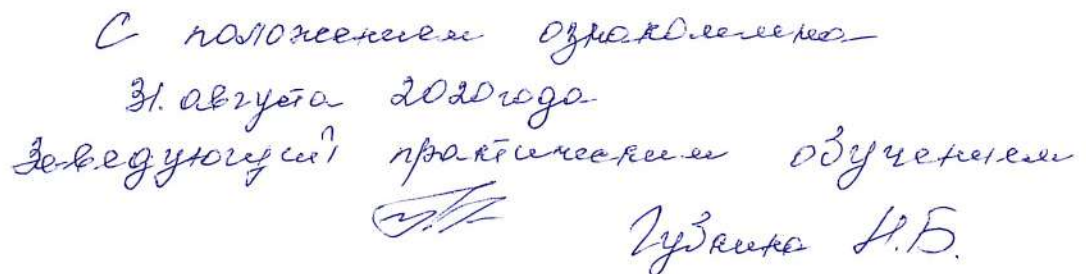 С положением ознакомлена
31. августа 2020 года
Заведующий практическим обучением
Губкина Н.Б.